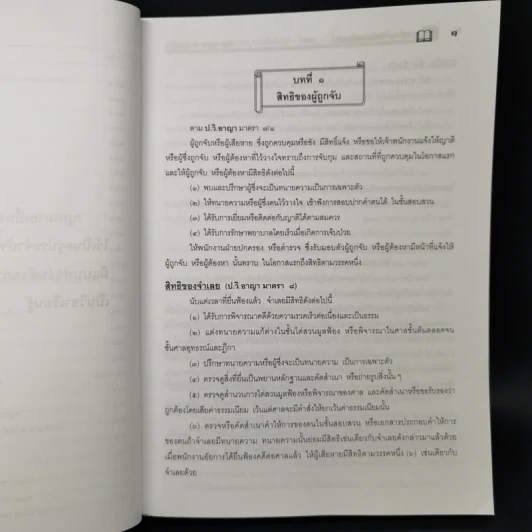 ๑
บทที่ ๑
สิทธิของผู้ถูกจับ
ตาม ป.วิ.อาญา มาตรา ๗/๑
ผู้ถูกจับหรือผู้เสียหาย ซึ่งถูกควบคุมหรือขัง มีสิทธิ์แจ้ง หรือขอให้เจ้าพนักงานแจ้งให้ญาติ
หรือผู้ซึ่งถูกจับ หรือผู้ต้องหาที่ไว้วางใจทราบถึงการจับกุม และสถานที่ที่ถูกควบคุมในโอกาสแรก
และให้ผู้ถูกจับ หรือผู้ต้องหามีสิทธิดังต่อไปนี้
(๑) พบและปรึกษาผู้ซึ่งจะเป็นทนายความเป็นการเฉพาะตัว
(๒) ให้ทนายความหรือผู้ซึ่งตนไว้วางใจ เข้าฟังการสอบปากคำตนได้ ในชั้นสอบสวน
(๓) ได้รับการเยี่ยมหรือติดต่อกับญาติได้ตามสมควร
(๔) ได้รับการรักษาพยาบาลโดยเร็วเมื่อเกิดการเจ็บป่วย
ให้พนักงานฝ่ายปกครอง หรือตำรวจ ซึ่งรับมอบตัวผู้ถูกจับ หรือผู้ต้องหามีหน้าที่แจ้งให้
ผู้ถูกจับ หรือผู้ต้องหา นั้นทราบ ในโอกาสแรกถึงสิทธิตามวรรคหนึ่ง
สิทธิของจำเลย (ป.วิ.อาญา มาตรา ๘)
นับแต่เวลาที่ยื่นฟ้องแล้ว จำเลยมีสิทธิดังต่อไปนี้
(๑) ได้รับการพิจารณาคดีด้วยความรวดเร็วต่อเนื่องและเป็นธรรม
(๒) แต่งทนายความแก้ต่างในชั้นไต่สวนมูลฟ้อง หรือพิจารณาในศาลชั้นต้นตลอดจน
ชั้นศาลอุทธรณ์และฎีกา
(๓) ปรึกษาทนายความหรือผู้ซึ่งจะเป็นทนายความ เป็นการเฉพาะตัว
(๔) ตรวจดูสิ่งที่ยื่นเป็นพยานหลักฐานและคัดสำเนา หรือถ่ายรูปสิ่งนั้น ๆ
(๕) ตรวจดูสำนวนการไต่สวนมูลฟ้องหรือพิจารณาของศาล และคัดสำเนาหรือขอรับรองว่า
ถูกต้องโดยเสียค่าธรรมเนียม เว้นแต่ศาลจะมีคำสั่งให้ยกเว้นค่าธรรมเนียมนั้น
(๖) ตรวจหรือคัดสำเนาคำให้การของตนในชั้นสอบสวน หรือเอกสารประกอบคำให้การ
ของตนถ้าจำเลยมีทนายความ ทนายความนั้นย่อมมีสิทธิเช่นเดียวกับจำเลยดังกล่าวมาแล้วด้วย
เมื่อพนักงานอัยการได้ยื่นฟ้องคดีต่อศาลแล้ว ให้ผู้เสียหายมีสิทธิตามวรรคหนึ่ง (๖) เช่นเดียวกับ
จำเลยด้วย